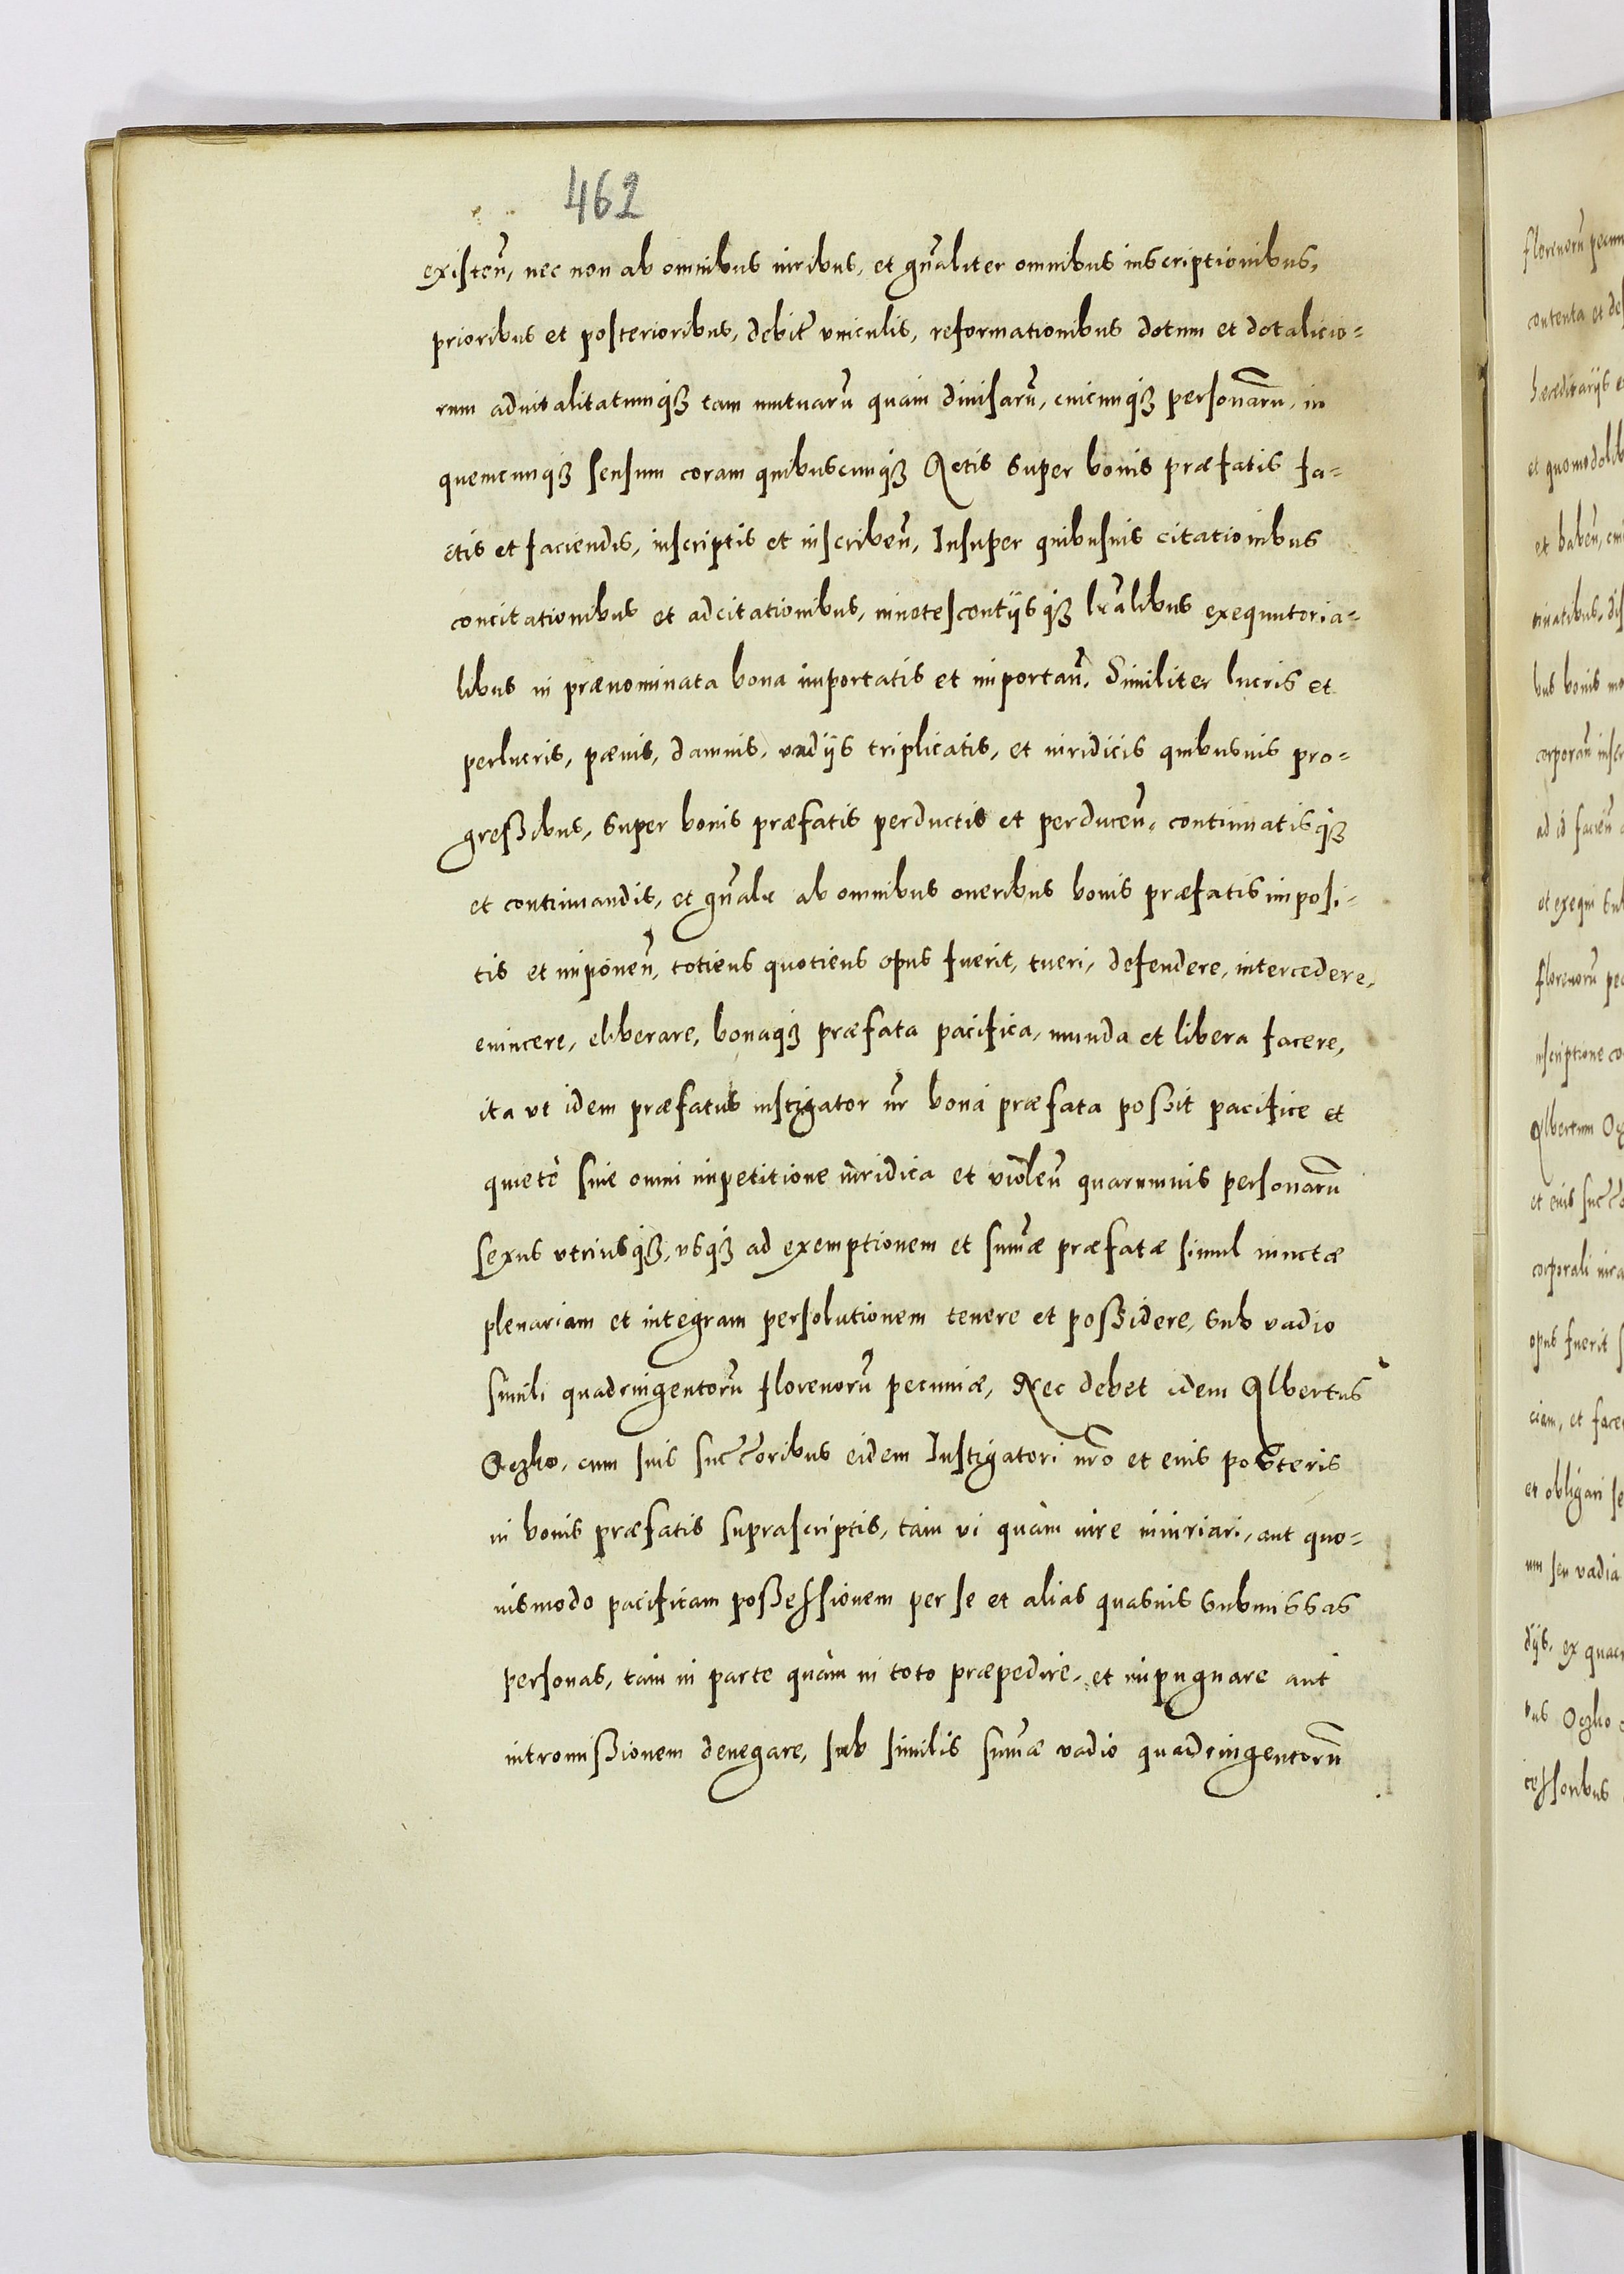 462
existeñ, nec non ab omnibus iuribus, et gñaliter omnibus inscriptionibus,
prioribus et posterioribus, debit̃ vinculis, reformationibus dotum et dotalicio=
rum aduitalitatumqꝫ tam mutuarũ quam diuisarũ, cuicunqꝫ personarũ, in
quemcunqꝫ sensum coram quibuscunqꝫ Actis super bonis præfatis fa=
ctis et faciendis, inscriptis et inscribeñ, Insuper quibusuis citationibus
concitationibus et adcitationibus, ninotescontijsqꝫ lr̃alibus exequutoria=
libus in prænominata bona importatis et importañ. Similiter lucris et
perlucris, pænis, damnis, vadijs triplicatis, et iuridicis quibusuis pro=
greßibus, super bonis præfatis perductis et perduceñ, continuatisqꝫ
et continuandis, et gñalr ab omnibus oneribus bonis præfatis imposi=
tis et imponeñ, totiens quotiens opus fuerit, tueri, defendere, intercedere,
euincere, eliberare, bonaqꝫ præfata pacifica, munda et libera facere,
ita vt idem præfatus instigator nr̃ bona præfata poßit pacifice et
quietè sine omni impetitione iuridica et violeñ quarumuis personarũ
sexus vtriusqꝫ, vsqꝫ ad exemptionem et sum̃æ præfatæ simul iunctæ
plenariam et integram persolutionem tenere et poßidere, sub vadio
simili quadringentorũ florenorũ pecuniæ, Nec debet idem Albertus
Oczko, cum suis succ̃c̃oribus eidem Instigatori nr̃o et eius posteris
in bonis præfatis suprascriptis, tam vi quàm iure iniuriari, aut quo=
uismodo pacificam poßessionem per se et alias quasuis submissas
personas, tam in parte quàm in toto præpedire, et impugnare aut
intromißionem denegare, sub similis sum̃æ vadio quadringentorũ
florenorũ pecun
contenta et de
hæreditarijs e
et quomodolib
et habeñ, cu
uinatibus, dis
bus bonis mo
corporañ inscr
ad id facieñ
et exequi sub
florenorũ pec
inscriptione co
Albertum Oc
et eius succ̃c̃o
corporali iura
opus fuerit s
ciam, et face
et obligari se
um seu vadia
dijs, ex quac
tus Oczko
cessoribus